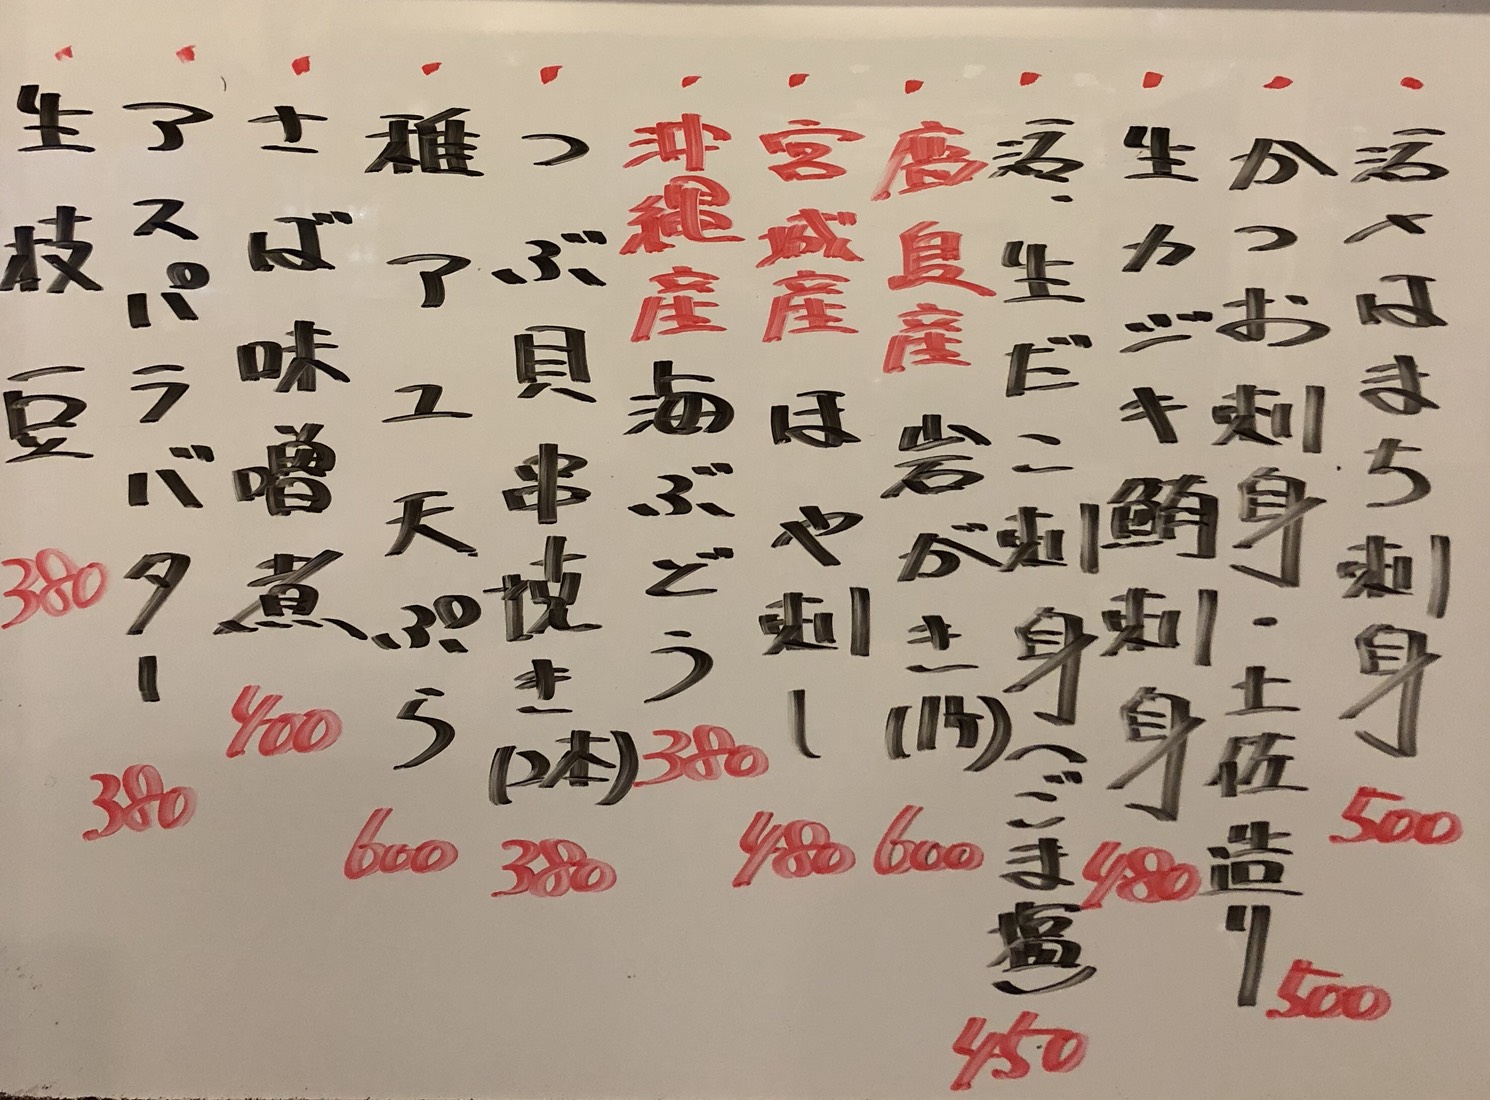 活〆はまち刺身 500
かつお刺身・土佐造り 500
生カジキ鮪刺身 480
活・生だこ刺身(ごま塩) 450
鹿児島産 岩がき(1ケ) 600
宮城産 ほや刺し 480
沖縄産 海ぶどう 380
つぶ貝串焼き(2本) 380
稚アユ天ぷら 600
さば味噌煮 400
アスパラバター 380
生枝豆 380